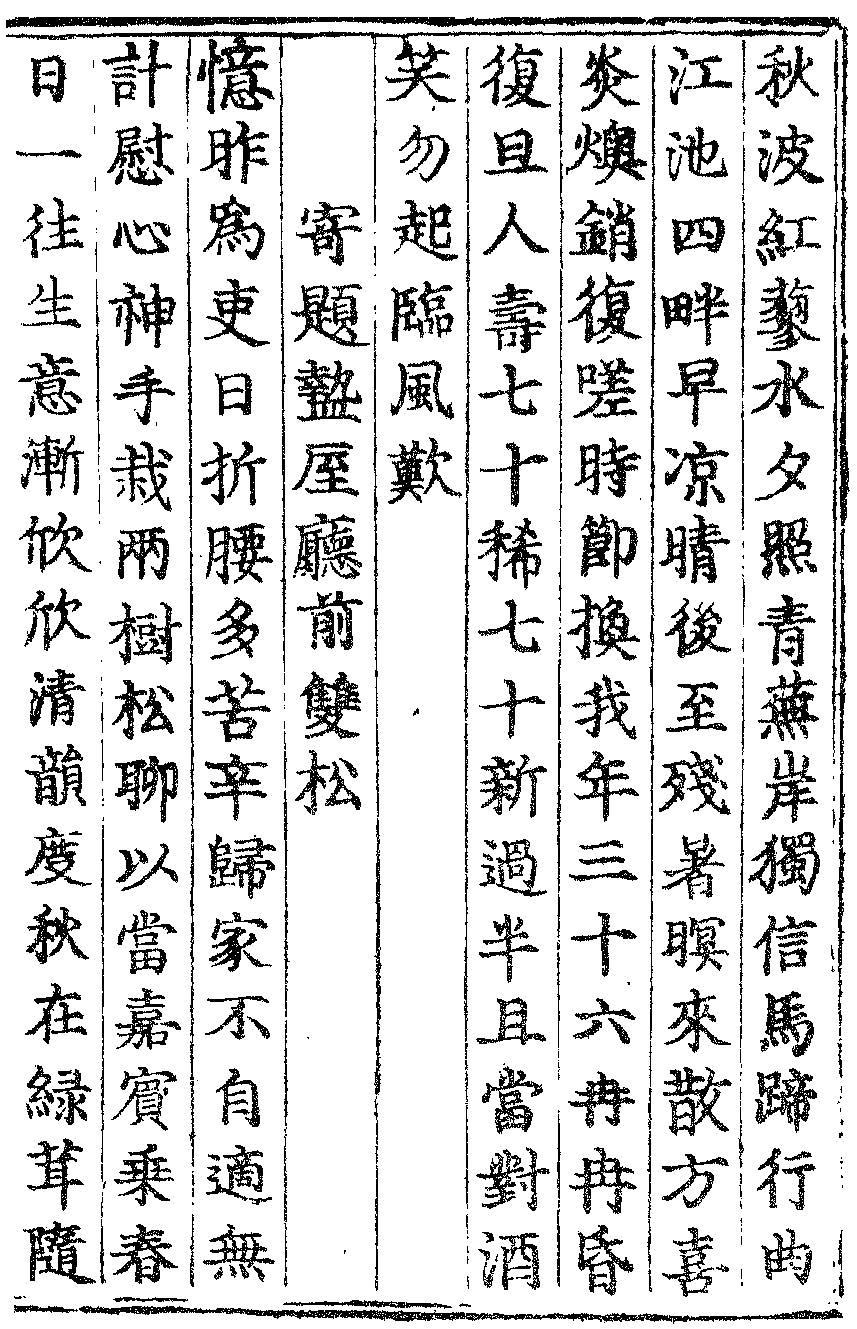 秋波紅蓼水夕照青蕪岸獨信馬蹄行曲
江池四畔早凉晴後至殘暑暝來散方喜
炎燠銷復嗟時節換我年三十六冉冉昏
復旦人壽七十稀七十新過半且當對酒
笑勿起臨風歎
寄題盩厔廳前雙松
憶昨爲吏日折腰多苦辛歸家不自適無
計慰心神手栽兩樹松聊以當嘉賓乗春
日一往生意漸欣欣清韻度秋在緑茸隨